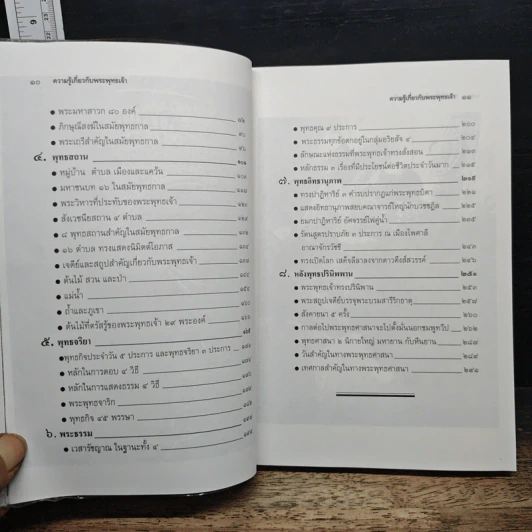 ๑๐ ความรู้เกี่ยวกับพระพุทธเจ้า
● พระมหาสาวก ๘๐ องค์
● ภิกษุณีสงฆ์ในสมัยพุทธกาล
● พระเถรีสำคัญในสมัยพุทธกาล
๔. พุทธสถาน
● หมู่บ้าน ตำบล เมืองและแคว้น
● มหาชนบท ๑๖ ในสมัยพุทธกาล
● พระวิหารที่ประทับของพระพุทธเจ้า
● สังเวชนียสถาน ๔ ตำบล
● ๘ พุทธสถานสำคัญในสมัยพุทธกาล
● ๑๖ ตำบล ทรงแสดงนิมิตต์โอภาส
● เจดีย์และสถูปสำคัญเกี่ยวกับพระพุทธเจ้า
● ต้นไม้ สวน และป่า
● แม่น้ำ
● ถ้ำและภูเขา
● ต้นไม้ที่ตรัสรู้ของพระพุทธเจ้า ๒๙ พระองค์
๕. พุทธจริยา
● พุทธกิจประจำวัน ๕ ประการ และพุทธจริยา ๓ ประการ
● หลักในการตอบ ๔ วิธี
● หลักในการแสดงธรรม ๔ วิธี
● พระพุทธจาริก
● พุทธกิจ ๔๕ พรรษา
๖. พระธรรม
● เวสารัชญาณ ในฐานะทั้ง ๔
ความรู้เกี่ยวกับพระพุทธเจ้า ๑๑
● พุทธคุณ ๙ ประการ ๒๐๐
● พระธรรมทุกข้อตกอยู่ในกลุ่มอริยสัจ ๔
● ลักษณะแห่งธรรมที่พระพุทธเจ้าทรงสั่งสอน
● หลักธรรม ๓ เรื่องที่มีประโยชน์ต่อชีวิตประจำวันมาก
๗. พุทธอิทธานุภาพ
● ทรงปาฏิหาริย์ ๓ คำรบปรากฏแก่พระพุทธบิดา
● แสดงอิทธานุภาพสยบคณาจารย์ใหญ่นักบวชชฎิล
● ยมกปาฏิหาริย์ อัศจรรย์ไฟคู่น้ำ
● รัตนสูตรปราบภัย ๓ ประการ ณ เมืองไพศาลี
อาณาจักรวัชชี ๒๔๓
● ทรงเปิดโลก เสด็จลีลาลงจากดาวดึงส์สวรรค์ ๒๔๖
๘. หลังพุทธปรินิพพาน ๒๕๑
● พระพุทธเจ้าทรงปรินิพพาน ๒๕๓
● พระสถูปเจดีย์บรรจุพระบรมสารีริกธาตุ ๒๕๘
● สังคายนา ๕ ครั้ง ๒๖๐
● กาลต่อไปพระพุทธศาสนาจะไปตั้งมั่นนอกชมพูทวีป
● พุทธศาสนา ๒ นิกายใหญ่ มหายาน กับหินยาน ๒๘๗
● วันสำคัญในทางพระพุทธศาสนา ๒๘๙
● เทศกาลสำคัญในทางพระพุทธศาสนา ๒๙๑